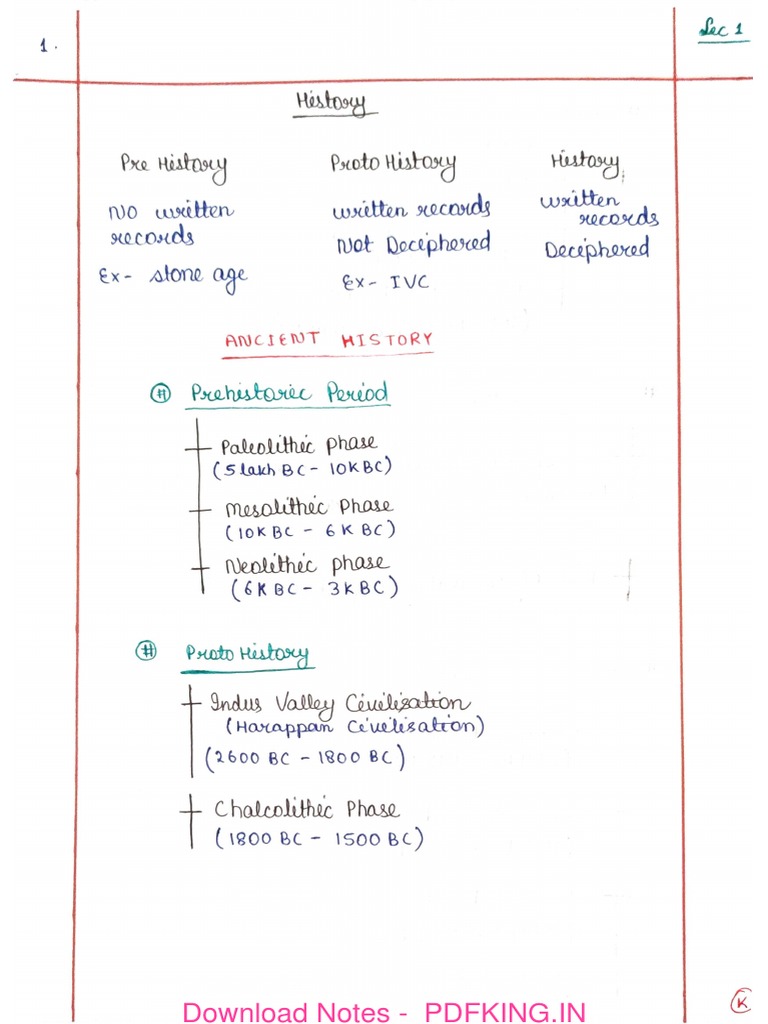 1.
Lec 1
History
Pre History
No written
records
Ex- stone age
Proto History
written records
Not Deciphered
Ex- IVC
History
written
records
Deciphered
ANCIENT HISTORY
# Prehistoric Period
Paleolithic phase
(5 lakh BC - 10K BC)
Mesolithic Phase
(10K BC - 6K BC)
Neolithic phase
(6K BC - 3K BC)
# Proto History
Indus Valley Civilization
(Harappan Civilisation)
(2600 BC - 1800 BC)
Chalcolithic Phase
(1800 BC - 1500 BC)
K
Download Notes - PDFKING.IN